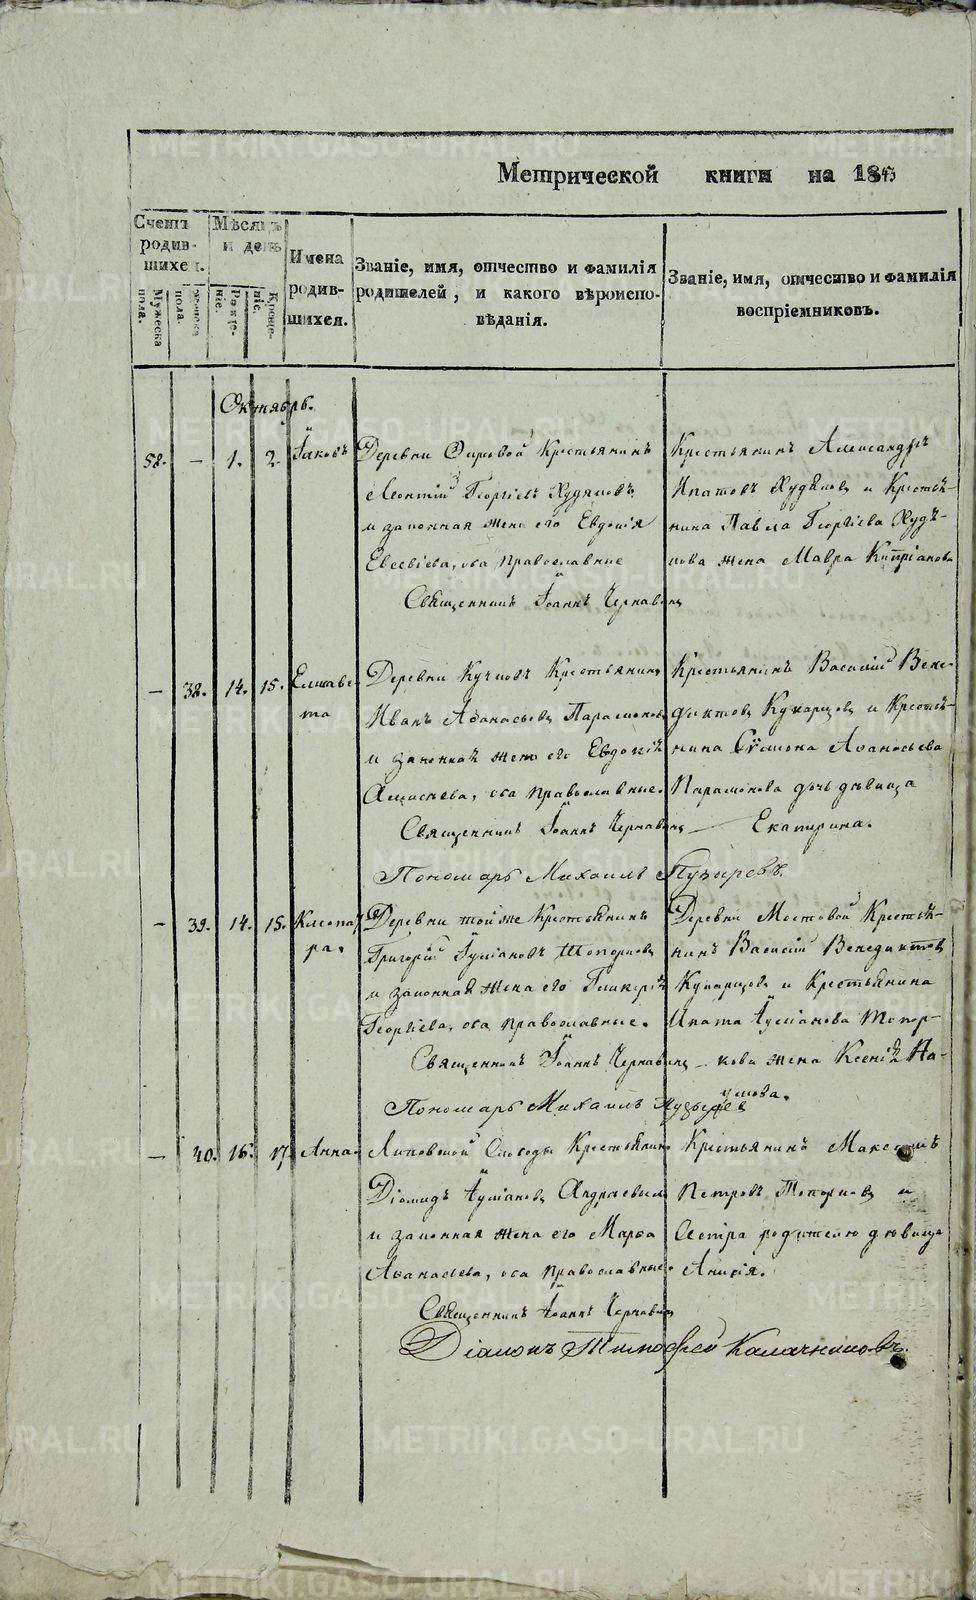 Метрической книги на 1843
Счетъ родив-шихся.
Мужеска пола.
женска пола.
Мѣсяцъ и день
Рожде-ніе.
Креще-ніе.
Имена родив-шихся.
Званіе, имя, отчество и фамилія родителей, и какого вѣроиспо-вѣданія.
Званіе, имя, отчество и фамилія воспріемниковъ.
Октябрь.
58. — 1. 2. Іаковъ
Деревни Крестьянинъ
Леонтій Георгіевъ Худяковъ
и законная жена его Евдокія
Евсевіева, оба православные
Священникъ Іоаннъ Чернавинъ
Крестьянинъ Александръ
Ипатовъ Худяковъ и Крестья-
нина Павла Георгіева Худя-
кова жена Мавра Кипріанова
— 38. 14. 15. Елисаве-
та
Деревни Крестьянинъ
Иванъ Аѳанасьевъ Парамоновъ
и законная жена его Евдокія
Алексѣева, оба православные.
Священникъ Іоаннъ Чернавинъ
Пономарь Михаилъ Пузыревъ
Крестьянинъ Василій Вене-
диктовъ Кукарцовъ и Крестья-
нина Сѵмеона Аѳанасьева
Парамонова дочь дѣвица
— Екатерина.
— 39. 14. 15. Клеопат-
ра.
Деревни той же Крестьянинъ
Григорій Іуліановъ Топорковъ
и законная жена его Гликерія
Георгіева, оба православные.
Священникъ Іоаннъ Чернавинъ
Пономарь Михаилъ Пузыревъ
Деревни Мостовой Крестья-
нинъ Василій Венедиктовъ
Кукарцовъ и Крестьянина
Ипата Іуліанова Топор-
кова жена Ксенія На-
умова.
— 40. 16. 17. Анна.
Липовской Слободы Крестьянинъ
Діомидъ Іуліановъ
и законная жена его Марѳа
Аѳанасіева, оба православные.
Священникъ Іоаннъ Чернавинъ
Діаконъ Тимофей Калачниковъ.
Крестьянинъ Максимъ
Петровъ Топорковъ и
Сестра родителю дѣвица
Анисія.
METRIKI.GASO-URAL.RU